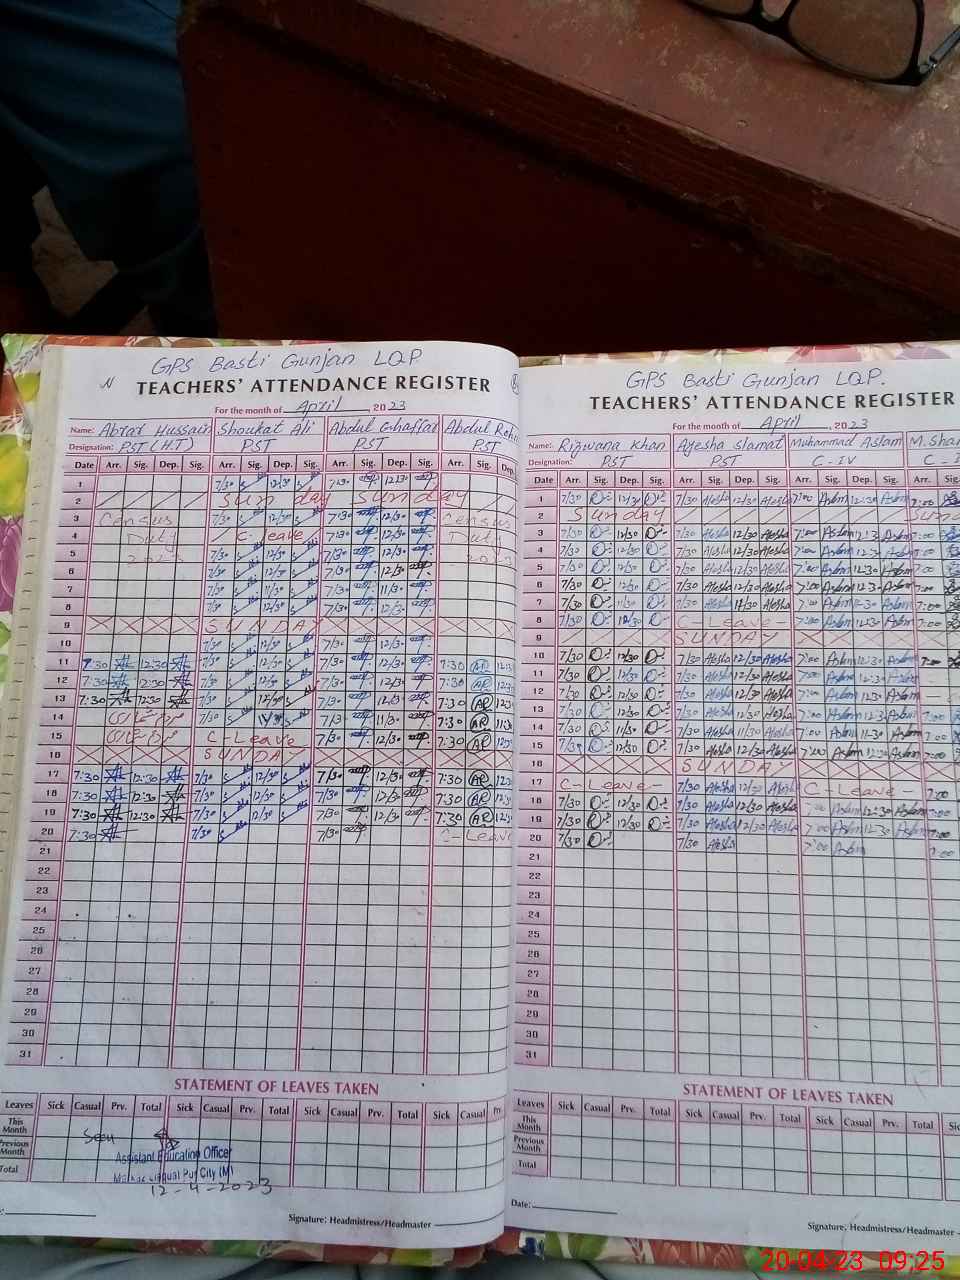 GPS Basti Gunjan LQP
TEACHERS' ATTENDANCE REGISTER
For the month of April, 2023
Name: Abrar Hussain Shoukat Ali Abdul Ghaffar Abdul
Designation: PST (H.T) PST PST PST
Date Arr. Sig. Dep. Sig. Arr. Sig. Dep. Sig. Arr. Sig. Dep. Sig. Arr. Sig. Dep.
1 7/30 12/30 7/30 12/30
2 Sunday Sunday
3 Census 7/30 12/30 7/30 12/30 Census
4 Duty C-Leave 7/30 12/30 Duty
5 2023 7/30 12/30 7/30 12/30 2023
6 7/30 12/30 7/30 12/30
7 7/30 11/30 7/30 11/30
8 7/30 12/30 7/30 12/30
9 SUNDAY
10 7/30 12/30 7/30 12/30
11 7:30 12:30 7/30 12/30 7/30 12/30 7:30 AR
12 7:30 12:30 7/30 12/30 7/30 12/30 7:30 AR
13 7:30 12:30 7/30 12/30 7/30 12/30 7:30 AR
14 7/30 11/30 7/30 11/30 7:30 AR
15 C-Leave 7/30 12/30 7:30 AR
16 SUNDAY
17 7:30 12:30 7/30 12/30 7/30 12/30 7:30 AR
18 7:30 12:30 7/30 12/30 7/30 12/30 7:30 AR
19 7:30 12:30 7/30 12/30 7/30 12/30 7:30 AR
20 7:30 7/30 7/30 C-Leave
21
22
23
24
25
26
27
28
29
30
31
STATEMENT OF LEAVES TAKEN
Leaves Sick Casual Prv. Total Sick Casual Prv. Total Sick Casual
This Month
Previous Month
Total
Seen
Assistant Education Officer
12-4-2023
Signature: Headmistress/Headmaster
GPS Basti Gunjan LQP.
TEACHERS' ATTENDANCE REGISTER
For the month of April, 2023
Name: Rizwana Khan Ayesha Slamat Muhammad Aslam
Designation: PST PST C-IV
Date Arr. Sig. Dep. Sig. Arr. Sig. Dep. Sig. Arr. Sig. Dep. Sig. Arr.
1 7/30 12/30 7/30 12/30 7:00 Aslam 12:30 Aslam 7:00
2 Sunday
3 7/30 12/30 7/30 12/30 7:00 Aslam 12:30 Aslam 7:00
4 7/30 12/30 7/30 12/30 7:00 Aslam 12:30 Aslam 7:00
5 7/30 12/30 7/30 12/30 7:00 Aslam 12:30 Aslam 7:00
6 7/30 12/30 7/30 12/30 7:00 Aslam 12:30 Aslam 7:00
7 7/30 11/30 7/30 11/30 7:00 Aslam Aslam 7:00
8 7/30 12/30 C-Leave 7:00 Aslam 12:30 Aslam 7:00
9 SUNDAY
10 7/30 12/30 7/30 12/30 7:00 Aslam 12:30 Aslam 7:00
11 7/30 12/30 7/30 12/30 7:00 Aslam 12:30 Aslam
12 7/30 12/30 7/30 12/30 7:00 Aslam Aslam
13 7/30 12/30 7/30 12/30 7:00 Aslam 12:30 Aslam 7:00
14 7/30 11/30 7/30 11/30 7:00 Aslam 11:30 Aslam 7:00
15 7/30 12/30 7/30 12/30 7:00 Aslam 12:30 Aslam 7:00
16 SUNDAY
17 C-Leave 7/30 12/30 C-Leave 7:00
18 7/30 12/30 7/30 12/30 7:00 Aslam 12:30 Aslam 7:00
19 7/30 12/30 7/30 12/30 7:00 Aslam 12:30 Aslam 7:00
20 7/30 7/30 7:00 Aslam 7:00
21
22
23
24
25
26
27
28
29
30
31
STATEMENT OF LEAVES TAKEN
Leaves Sick Casual Prv. Total Sick Casual Prv. Total Sick Casual Prv. Total
This Month
Previous Month
Total
Date:
Signature: Headmistress/Headmaster
20-04-23 09:25